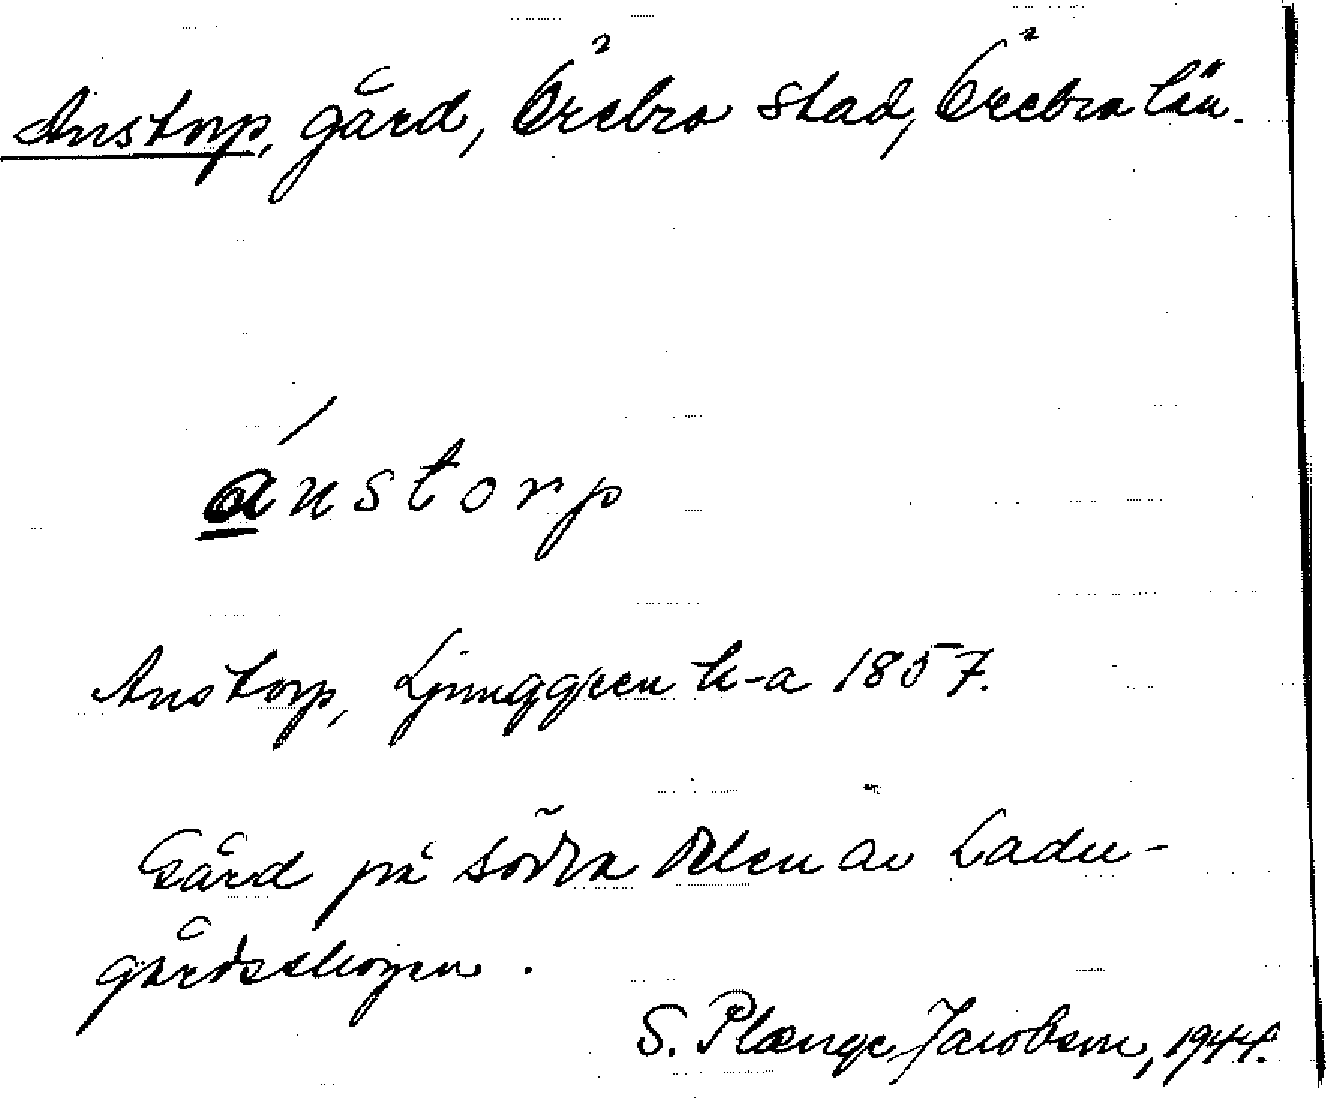 Anstorp, gård, Örebro stad, Örebro län.
ánstorp
Anstorp, Ljunggren k-a 1857.
Gård på södra delen av Ladu-
gårdsskogen.
S. Plænge Jacobson, 1944.